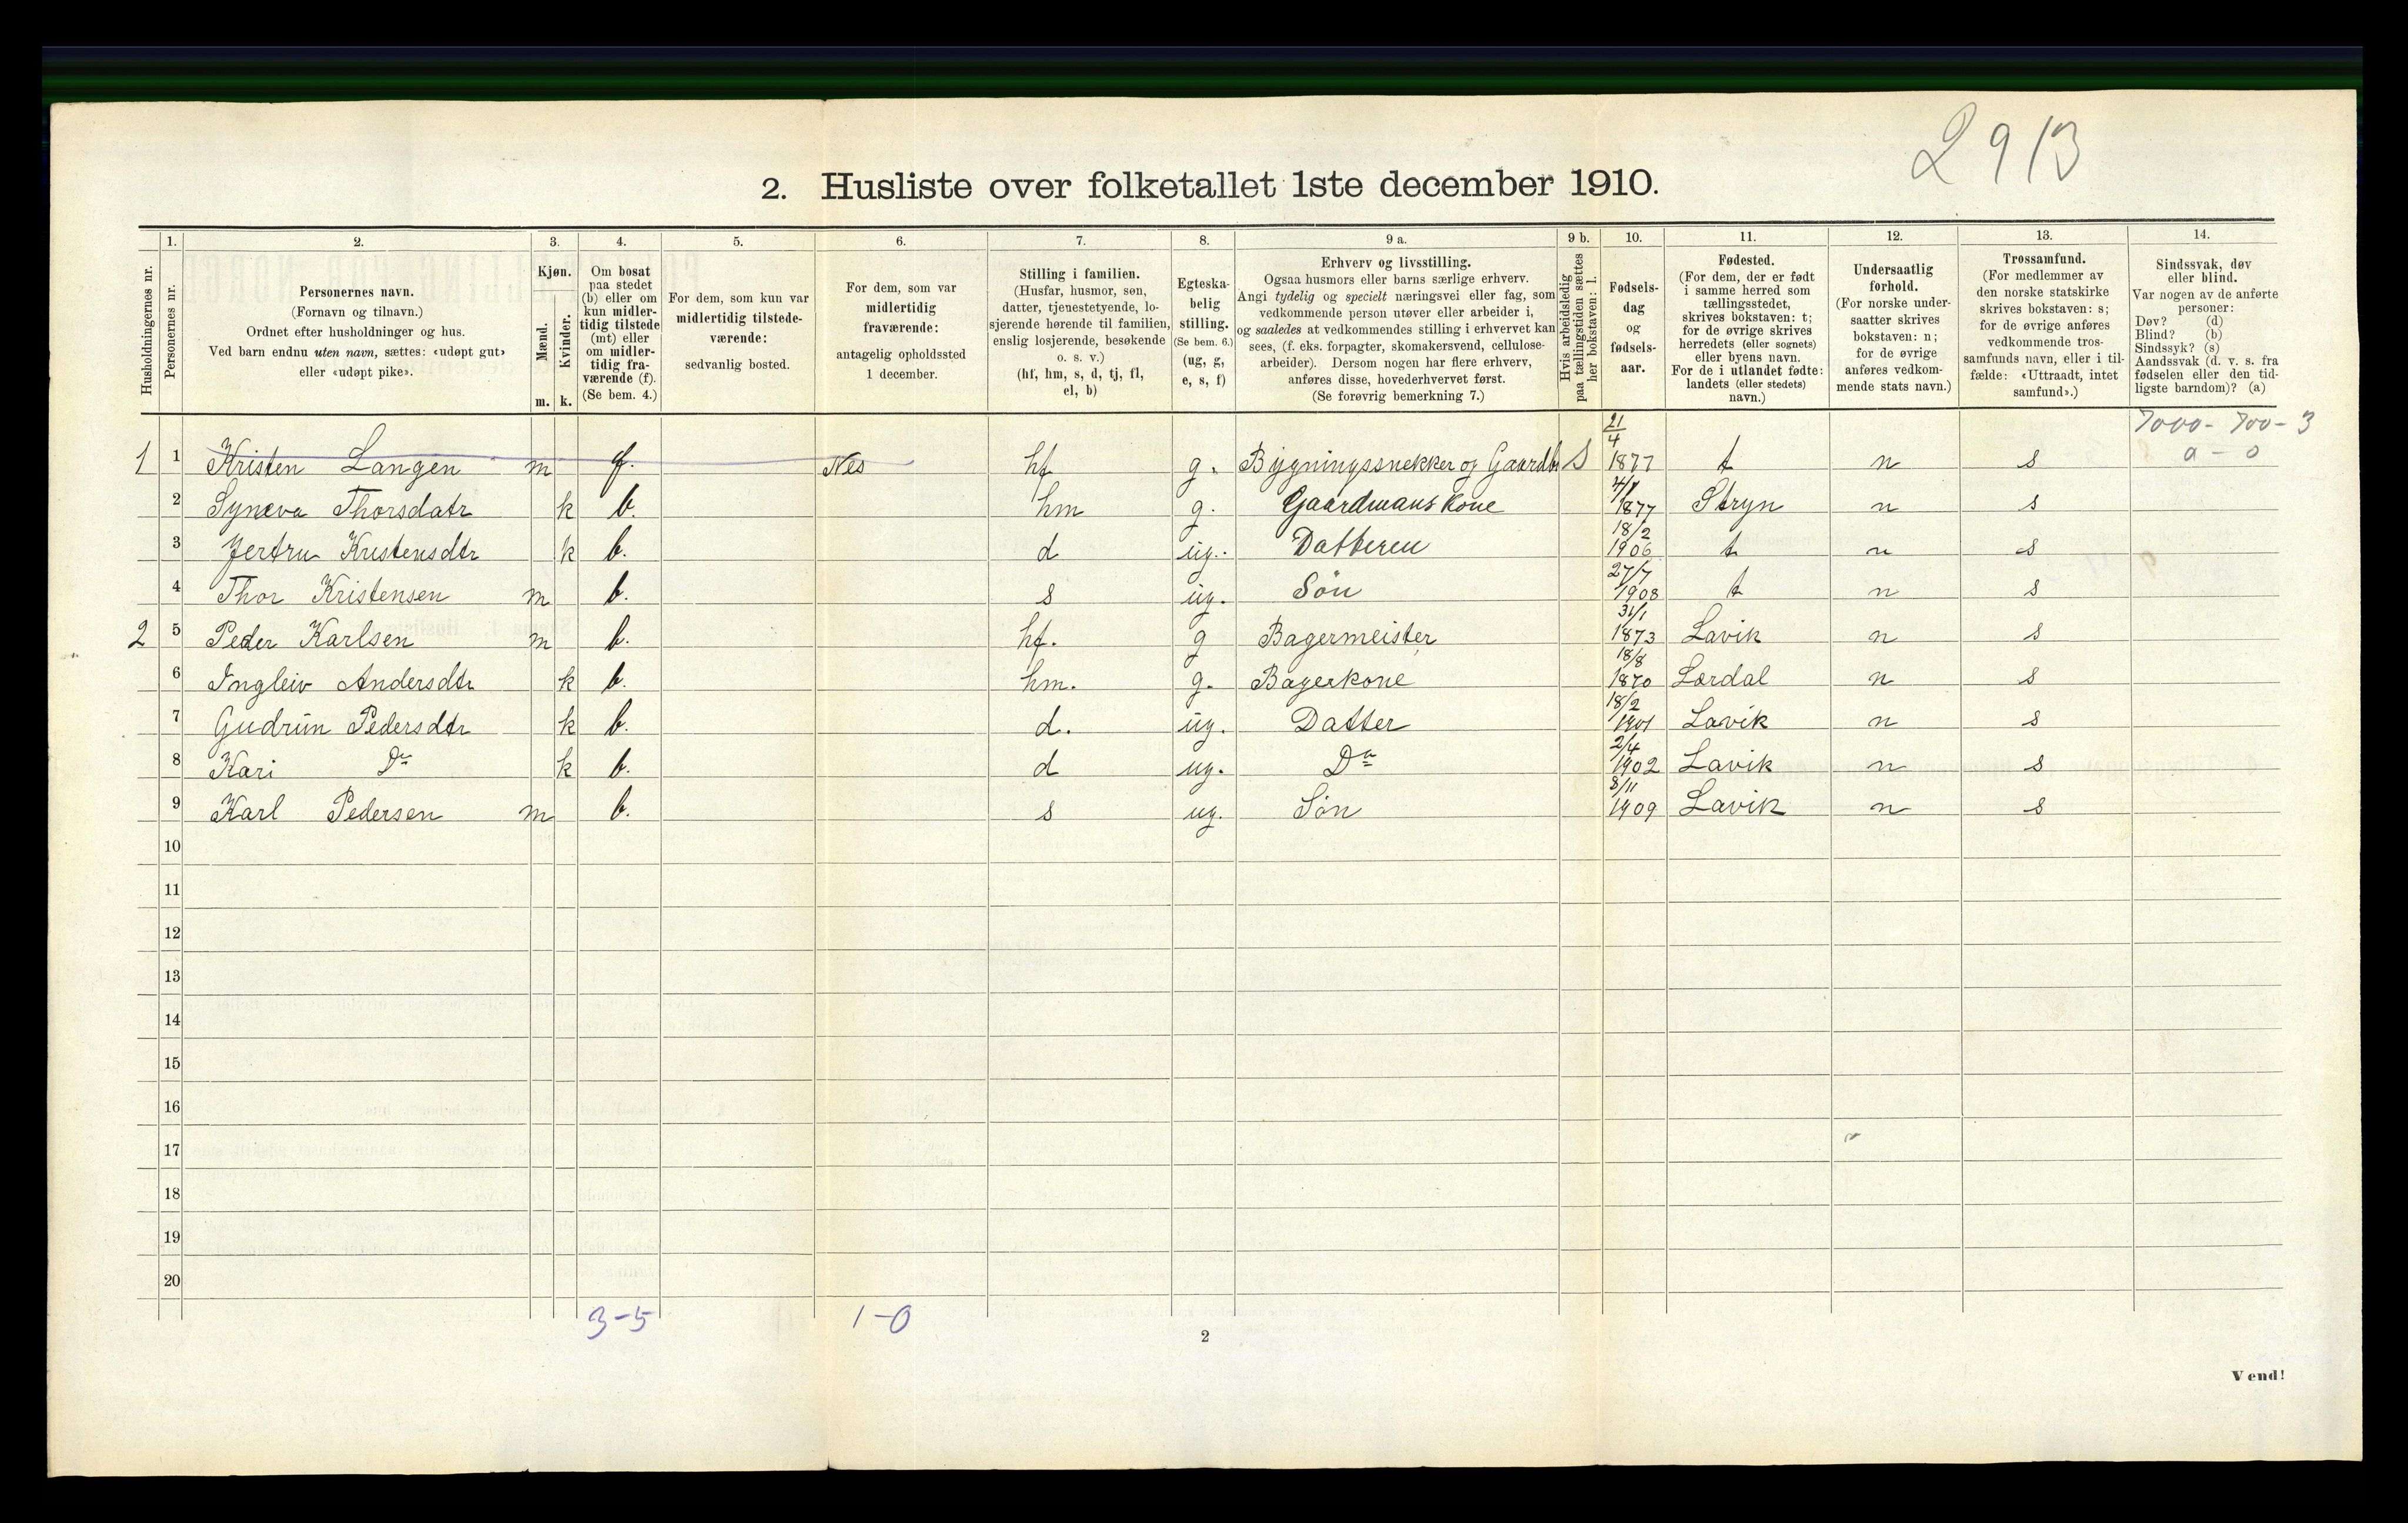 2913
2. Husliste over folketallet 1ste december 1910.
1. 2. 3. 4. 5. 6. 7. 8. 9 a. 9 b. 10. 11. 12. 13. 14.
Husholdningernes nr.
Personernes nr.
Personernes navn.
(Fornavn og tilnavn.)
Ordnet efter husholdninger og hus.
Ved barn endnu uten navn, sættes: «udøpt gut»
eller «udøpt pike».
Kjøn.
Mænd.
Kvinder.
m. k.
Om bosat
paa stedet
(b) eller om
kun midler-
tidig tilstede
(mt) eller
om midler-
tidig fra-
værende (f).
(Se bem. 4.)
For dem, som kun var
midlertidig tilstede-
værende:
sedvanlig bosted.
For dem, som var
midlertidig
fraværende:
antagelig opholdssted
1 december.
Stilling i familien.
(Husfar, husmor, søn,
datter, tjenestetyende, lo-
sjerende hørende til familien,
enslig losjerende, besøkende
o. s. v.)
(hf, hm, s, d, tj, fl,
el, b)
Egteska-
belig
stilling.
(Se bem. 6.)
(ug, g,
e, s, f)
Erhverv og livsstilling.
Ogsaa husmors eller barns særlige erhverv.
Angi tydelig og specielt næringsvei eller fag, som
vedkommende person utøver eller arbeider i,
og saaledes at vedkommendes stilling i erhvervet kan
sees, (f. eks. forpagter, skomakersvend, cellulose-
arbeider). Dersom nogen har flere erhverv,
anføres disse, hovederhvervet først.
(Se forøvrig bemerkning 7.)
Hvis arbeidsledig
paa tællingstiden sættes
her bokstaven: l.
Fødsels-
dag
og
fødsels-
aar.
Fødested.
(For dem, der er født
i samme herred som
tællingsstedet,
skrives bokstaven: t;
for de øvrige skrives
herredets (eller sognets)
eller byens navn.
For de i utlandet fødte:
landets (eller stedets)
navn.)
Undersaatlig
forhold.
(For norske under-
saatter skrives
bokstaven: n;
for de øvrige
anføres vedkom-
mende stats navn.)
Trossamfund.
(For medlemmer av
den norske statskirke
skrives bokstaven: s;
for de øvrige anføres
vedkommende tros-
samfunds navn, eller i til-
fælde: «Uttraadt, intet
samfund».)
Sindssvak, døv
eller blind.
Var nogen av de anførte
personer:
Døv? (d)
Blind? (b)
Sindssyk? (s)
Aandssvak (d. v. s. fra
fødselen eller den tid-
ligste barndom)? (a)
7000 - 700 - 3
a - 0
1 1 Kristen Langen m f. Nes hf g. Bygningssnekker og Gaardbr S 21/4 1877 t n s
2 Syneva Thorsdatr k b. hm g. Gaardmans Kone 1877 Stryn n s
3 Jertru Kristensdtr k b. d ug. Datteren 18/2 1906 t n s
4 Thor Kristensen m b. s ug. Søn 27/7 1908 t n s
2 5 Peder Karlsen m b. hf. g Bagermeister 31/1 1873 Lavik n s
6 Ingleiv Andersdtr k b. hm. g. Bagerkone 18/8 1870 Lærdal n s
7 Gudrun Pedersdtr k b. d. ug. Datter 18/2 1901 Lavik n s
8 Kari Do k b. d ug. Do 2/4 1902 Lavik n s
9 Karl Pedersen m b. s ug. Søn 8/11 1909 Lavik n s
10
11
12
13
14
15
16
17
18
19
20
3-5 1-0
2
Vend!